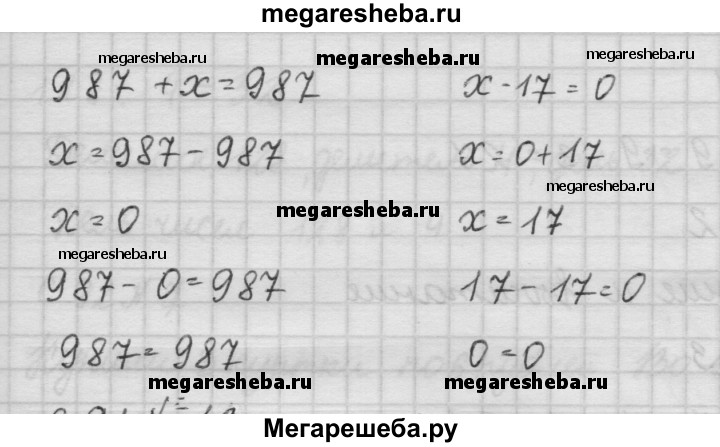 megaresheba.ru
megaresheba.ru megaresheba.ru megaresheba.ru
987 + x = 987 x - 17 = 0
x = 987 - 987 x = 0 + 17
megaresheba.ru
x = 0 megaresheba.ru x = 17
megaresheba.ru
987 - 0 = 987 17 - 17 = 0
987 = 987 0 = 0
megaresheba.ru megaresheba.ru
Мегарешеба.ру